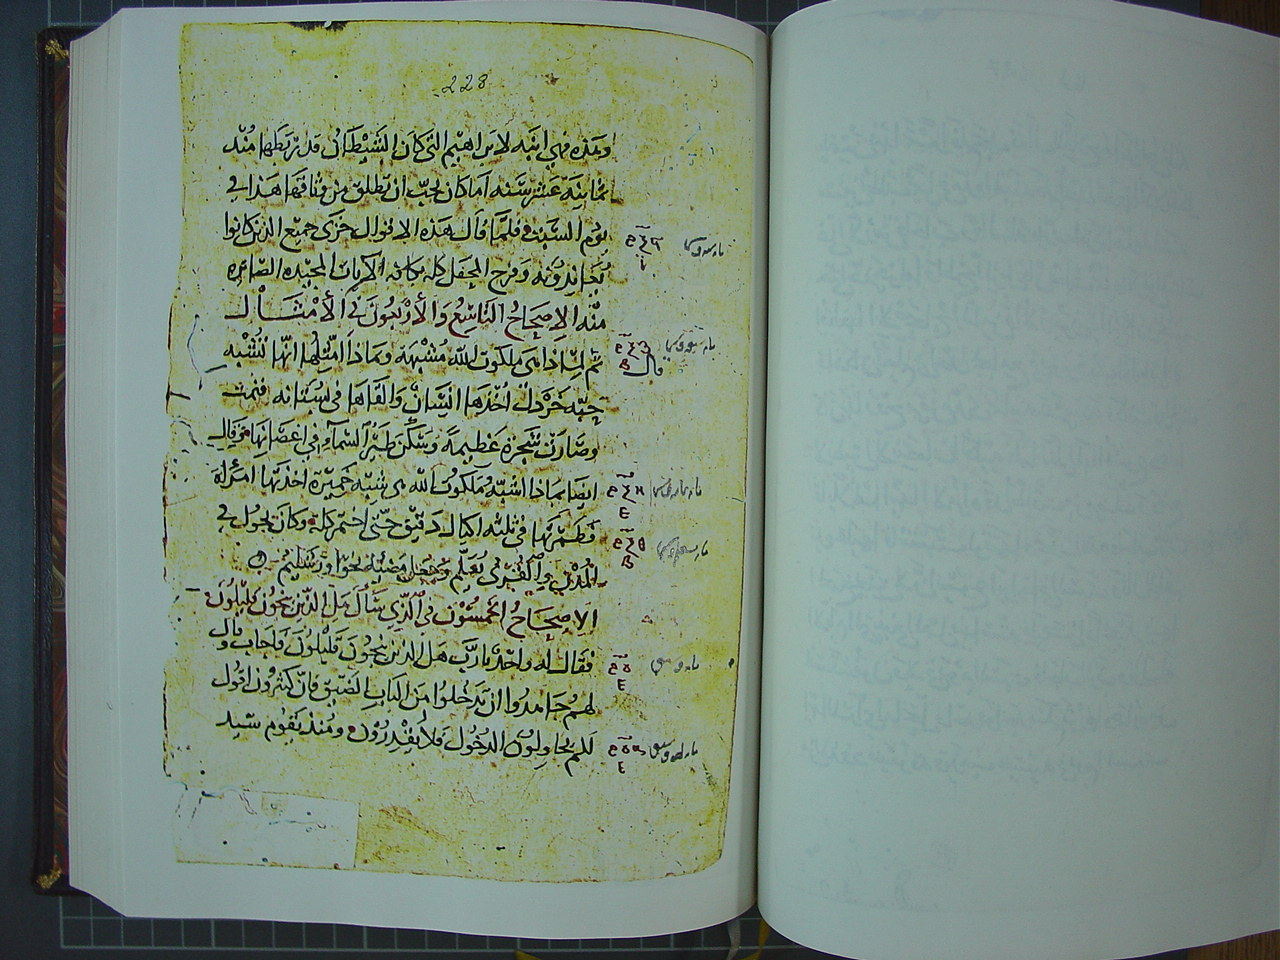 228
وهذه فهي ابنه لابراهيم التى كان الشيطان قد ربطها منذ
ثمانية عشر سنه اما كان يجب ان تطلق من وثاقها هذا في
يوم السبت فلما قال هذه الاقوال خزى جميع الذين كانوا
يعاندونه وفرح المحفل كله بكافه الايات المجيده الصائره
منه الاصحاح التاسع والاربعون في الامثال
ثم قال لماذا هى ملكوت الله مشبهه وبماذا امثلها انها تشبه
حبه خردل اخذها انسان والقاها في بستانه فنمت
وصارت شجرة عظيمة وسكن طير السماء في اغصانها وقال
ايضا بماذا اشبه ملكوت الله هى شبه خميرة اخذتها امراة
فطمرتها في ثلثه اكيال دقيق حتى اختمر كله وكان يجول في
المدن والقرى يعلم ويجعل مضيه نحو اورشليم
الاصحاح الخمسون في الذي سأل هل الذين ينجون قليلون
فقال له واحد يارب هل الذين ينجون قليلون فاجاب وقال
لهم جاهدوا ان تدخلوا من الباب الضيق فان كثيرون اقول
لكم يحاولون الدخول فلا يقدرون ومنذ يقوم سيد